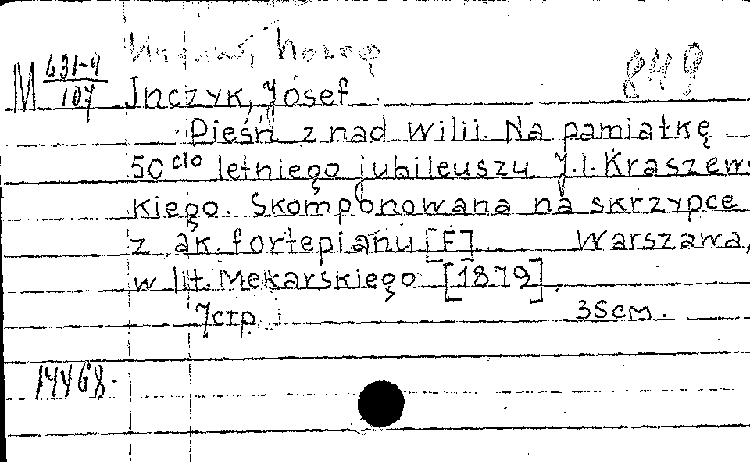 849
M 631-9/107
Jnczyk, Józef
Pieśń z nad Wilii. Na pamiątkę
50 cio letniego jubileuszu J.I. Kraszew-
kiego. Skomponowana na skrzypce
z ak. fortepianu [F] Warszawa,
w lit. Mękarskiego [1879].
7 стр. 35 cm.
14468.